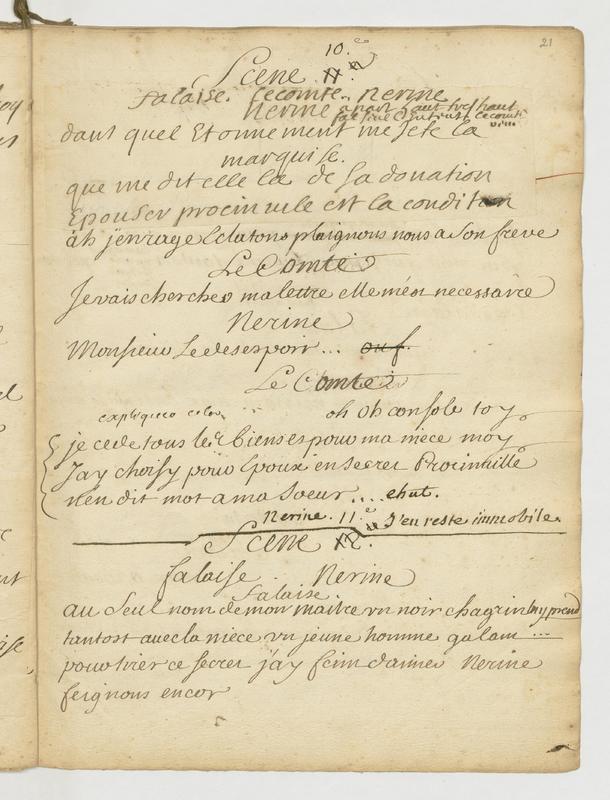 21
10.e
Scene 11.e
falaise. Le comte. Nerine
Nerine apart haut tres haut
Le comte
dans quel Etonnement me Jete la
marquise.
que me dit elle la de sa donation
Epouser procinville est la condition
ah j'enrage Eclatons plaignons nous a son frere
Le Comte
Je vais chercher ma lettre elle m'est necessaire
Nerine
Monsieur Le desespoir ... ouf.
Le Comte
expliquer cela oh oh console toy
je cede tous les biens pour ma niece moy
J'ay choisy pour Epoux en secret Procinville
n'en dit mot a ma soeur .... chut.
Nerine. J'en reste immobile.
Scene 11.e 12.
falaise Nerine
falaise
au seul nom de mon maitre un noir chagrin luy prend
tantost avec la niece un jeune homme galant ...
pour tirer ce secret j'ay feint d'aimer Nerine
feignons encor